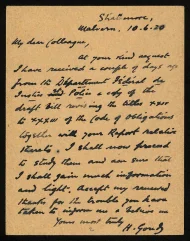 Shatmore,
Malvern, 10.6.20
My dear Colleague,
At your kind request
I have received a couple of days ago
from the Department Fédéral de
Justice and Police a copy of the
draft Bill revising the titles XXIV
to XXXIII of the Code of Obligations
together with your Report relative
thereto. I shall now proceed
to study them and am sure that
I shall gain much information
and light. Accept my renewed
thanks for the trouble you have
taken to inform me
Yours most truly
H. Goudy